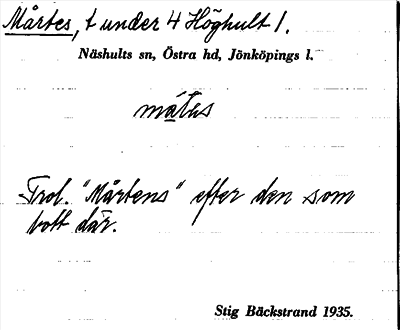 Mårtes, t under 4 Höghult 1.
Näshults sn, Östra hd, Jönköpings l.
mátes
Trol. "Mårtens" efter den som
bott där.
Stig Bäckstrand 1935.